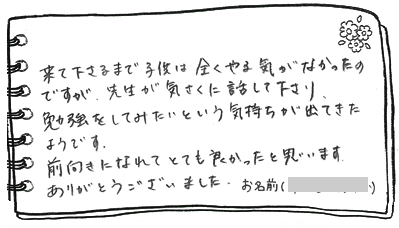 来て下さるまで子供は全くやる気がなかったの
ですが、先生が気さくに話して下さり、
勉強をしてみたいという気持ちが出てきた
ようです。
前向きになれてとても良かったと思います。
ありがとうございました。お名前(